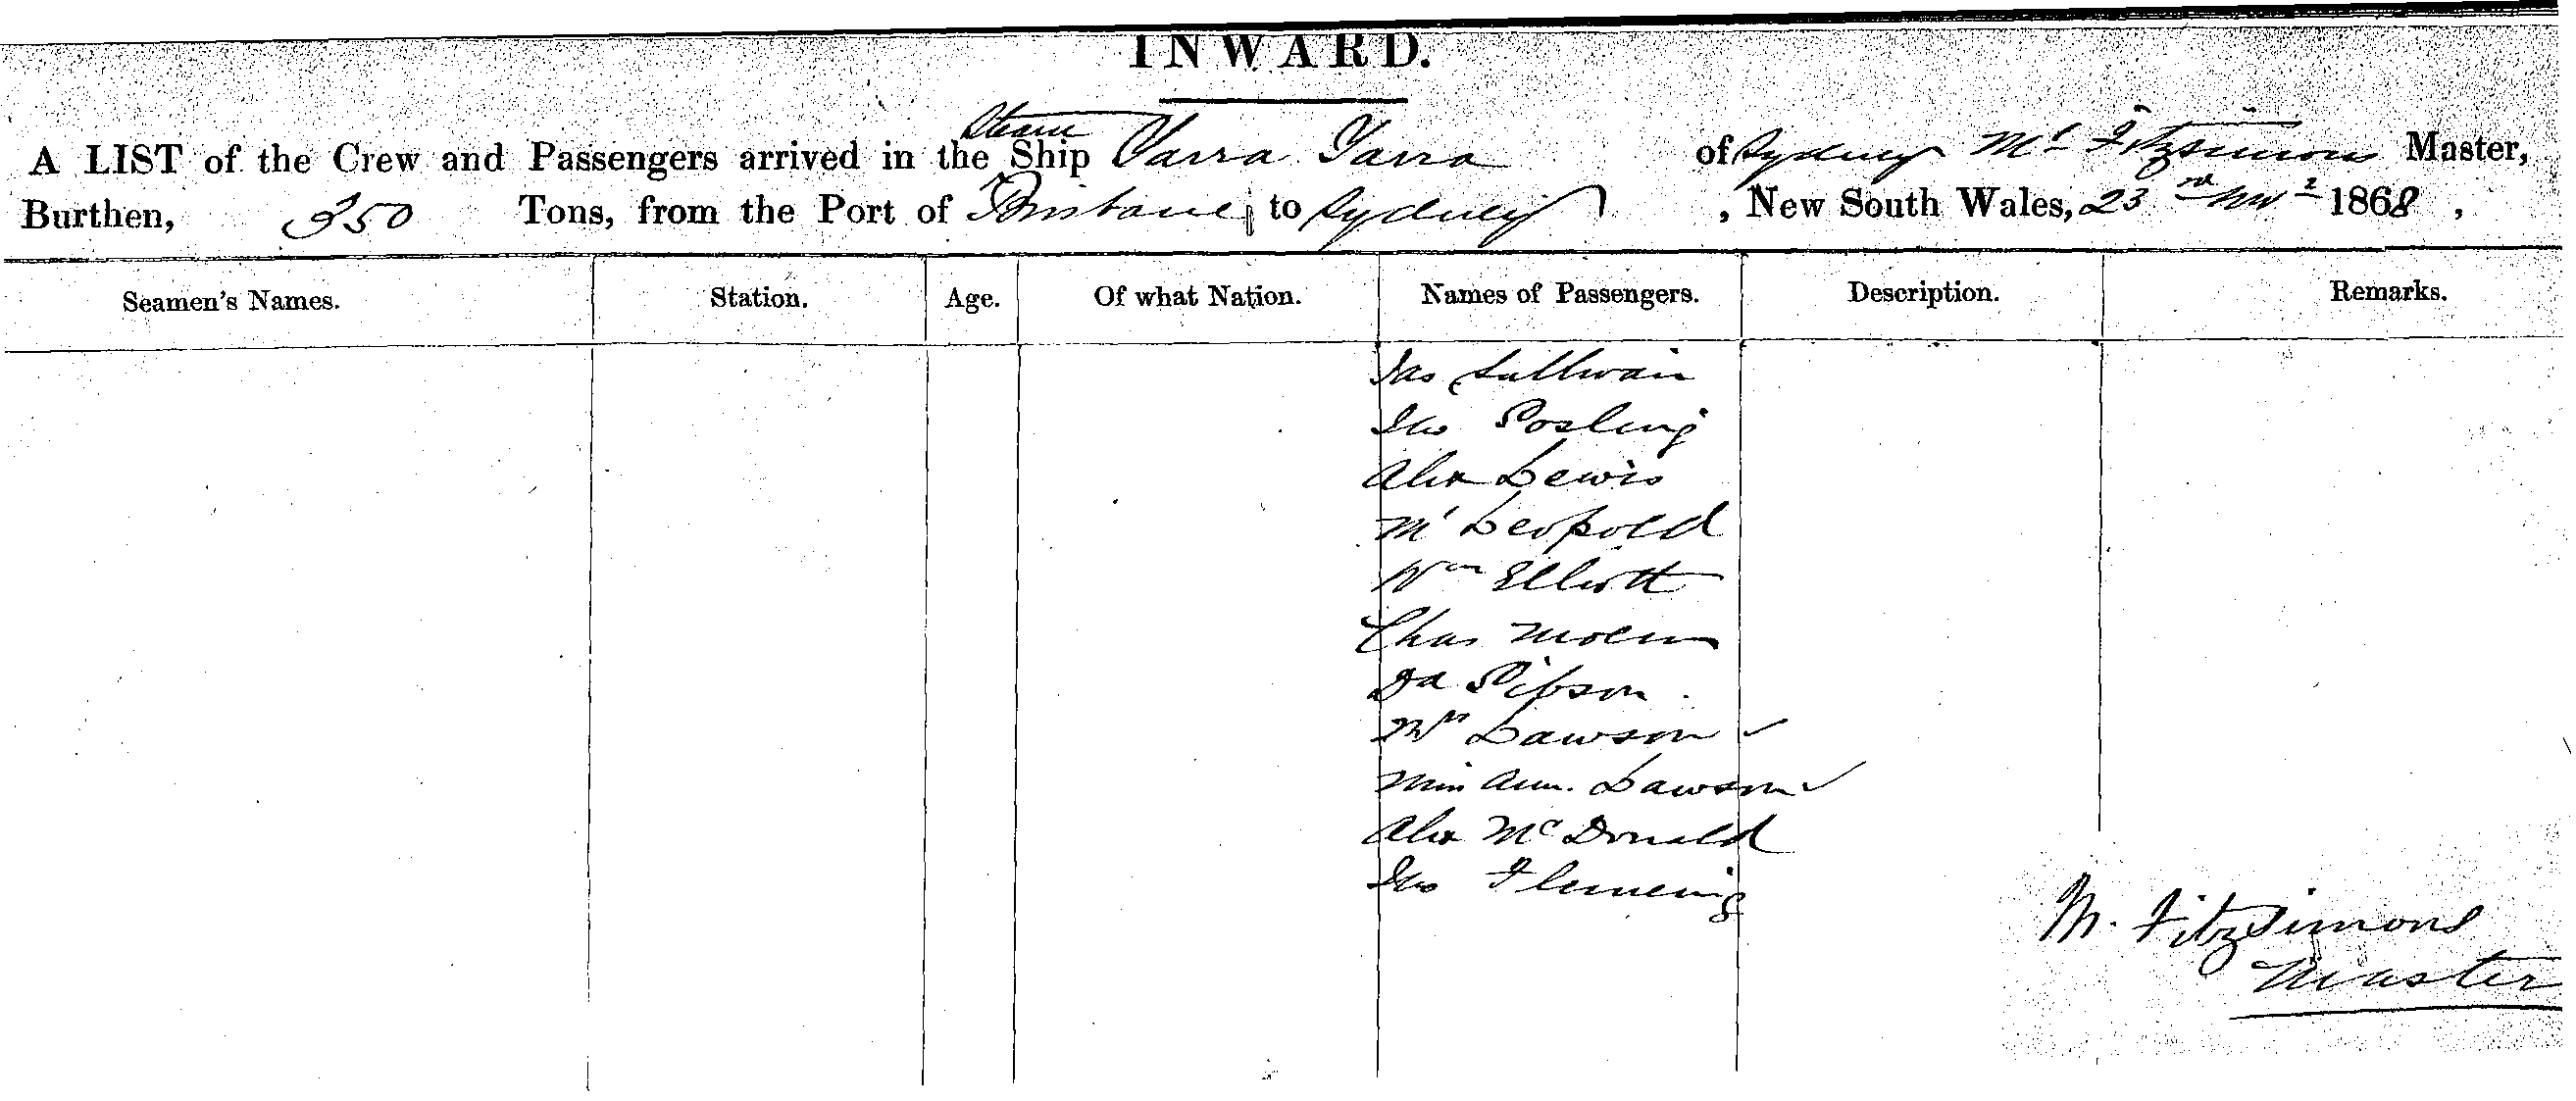 INWARD.
A LIST of the Crew and Passengers arrived in the Steam Ship Yarra Yarra of Sydney Mr Fitzsimons Master,
Burthen, 350 Tons, from the Port of Brisbane, to Sydney, New South Wales, 23rd 1868,
Seamen's Names. Station. Age. Of what Nation. Names of Passengers. Description. Remarks.
Jas Sullivan
Jas Gosling
Alex Lewis
Mr Leopold
Wm Elliott
Chas
Dd Gibson
Mrs Lawson
Miss Ann. Lawson
Alex McDonald
Jas Fleming
M. Fitzsimons
Master